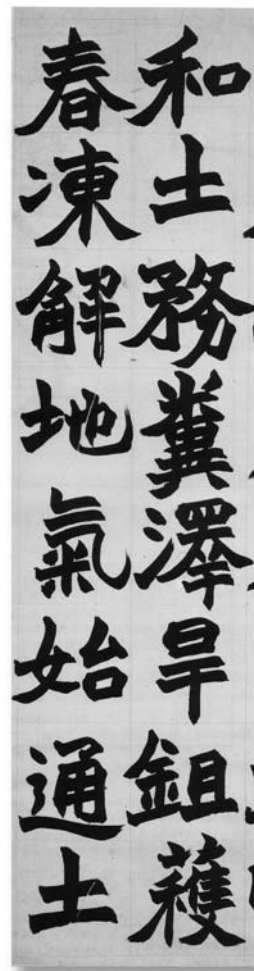 和土務糞澤旱鉏穫
春凍解地氣始通土